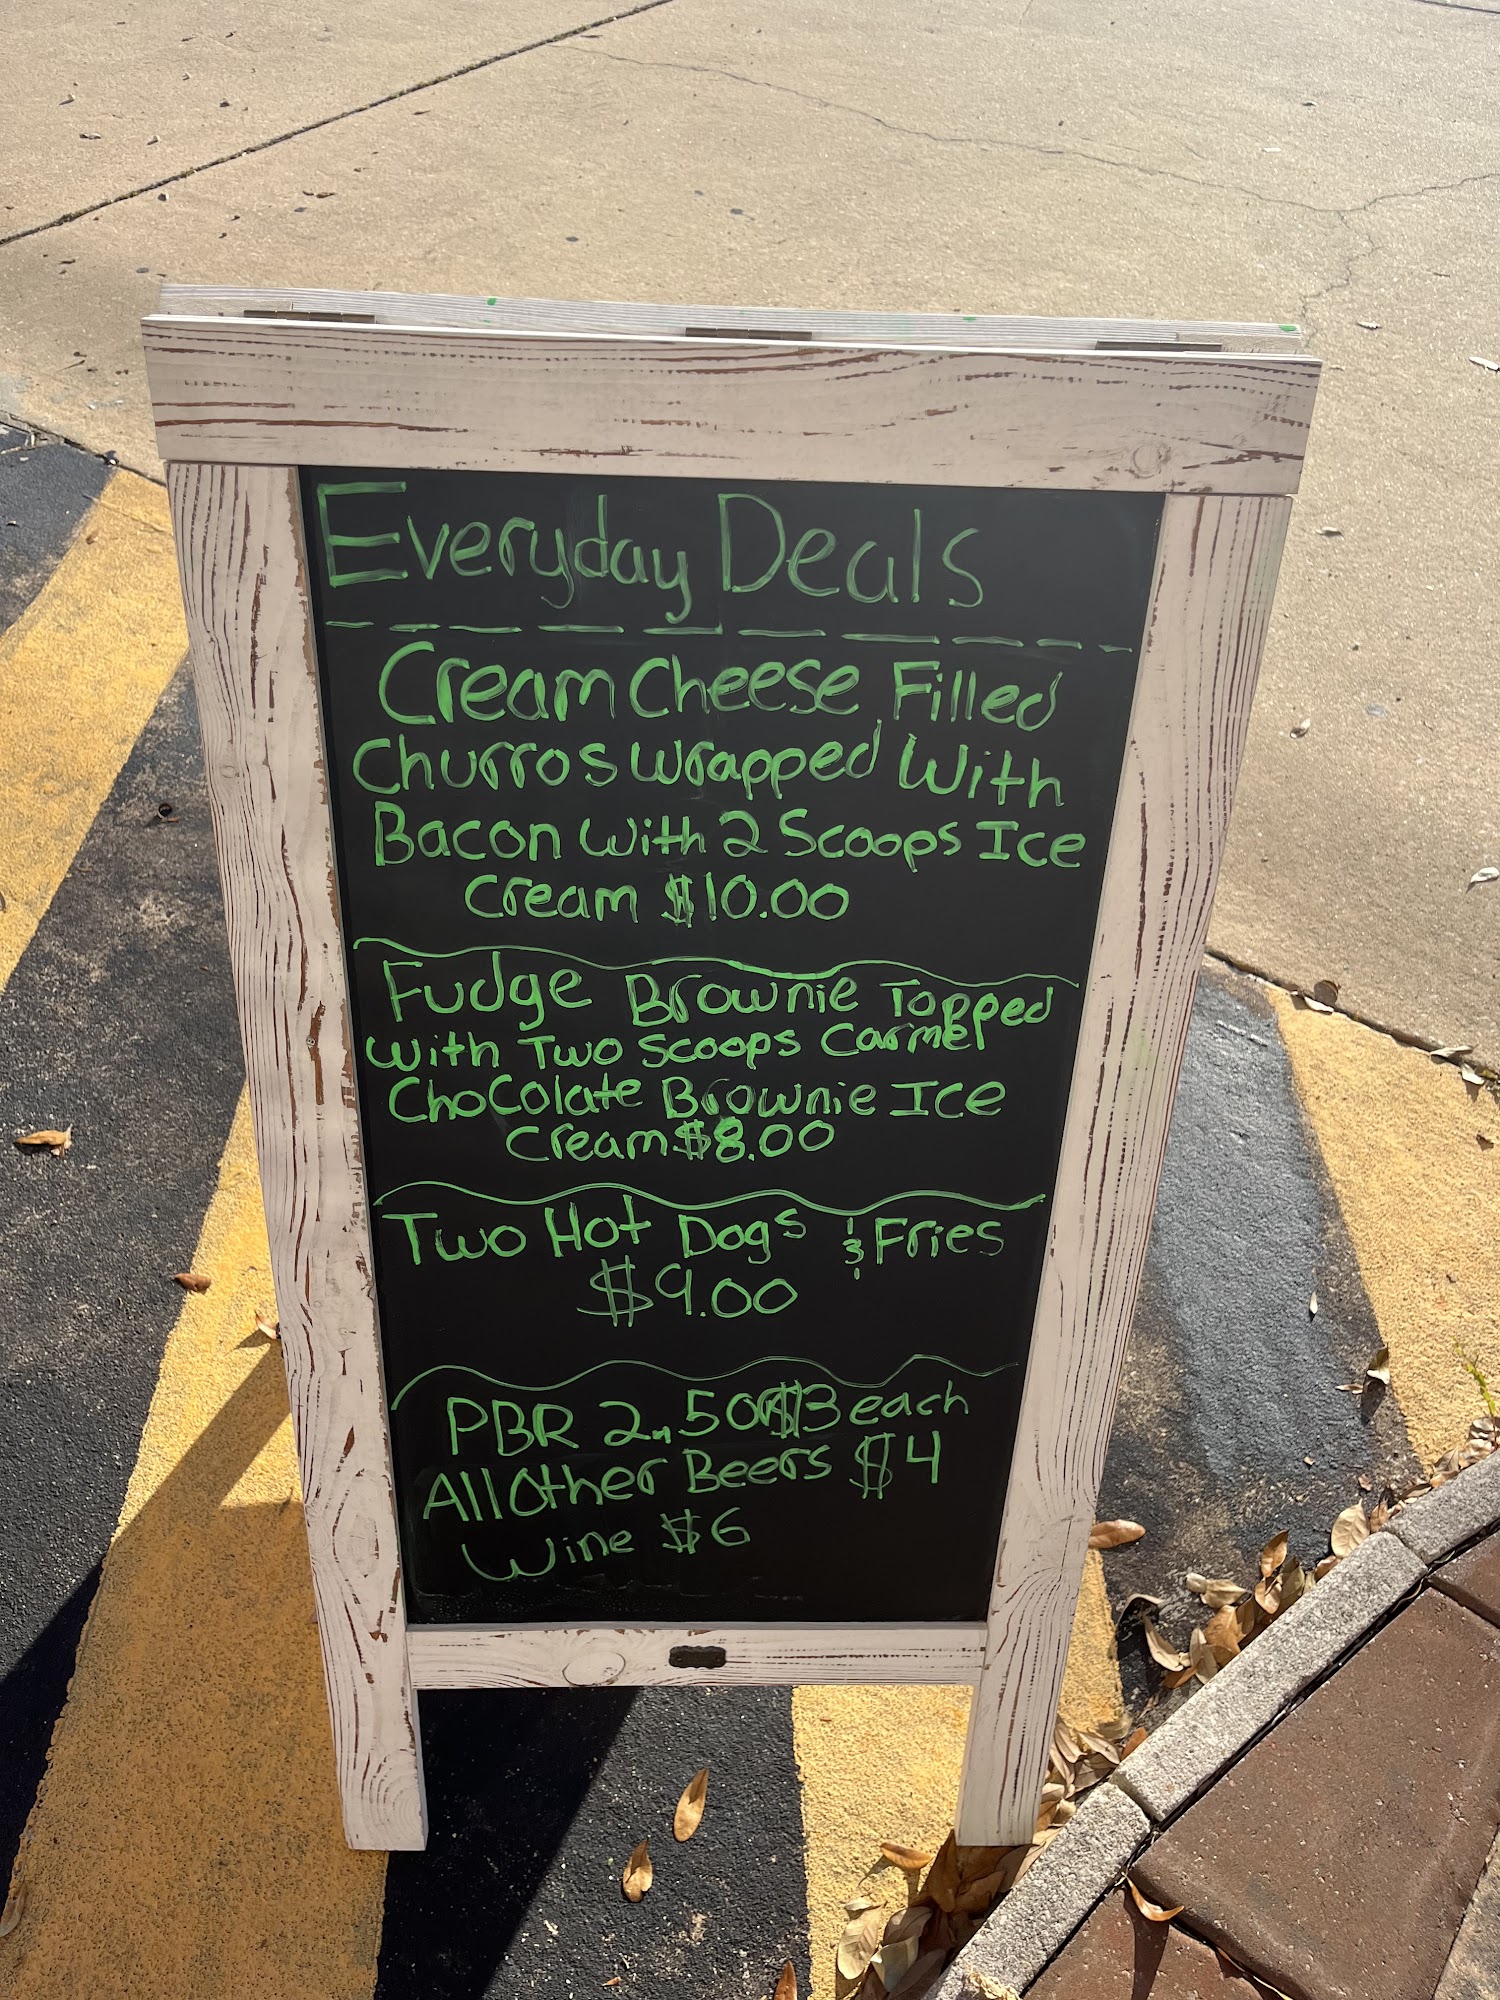 Everyday Deals
Cream Cheese Filled
Churros Wrapped With
Bacon with 2 Scoops Ice
Cream $10.00
Fudge Brownie Topped
with Two Scoops Carmel
Chocolate Brownie Ice
Cream $8.00
Two Hot Dogs & Fries
$9.00
PBR 2.50 $3 each
All Other Beers $4
Wine $6